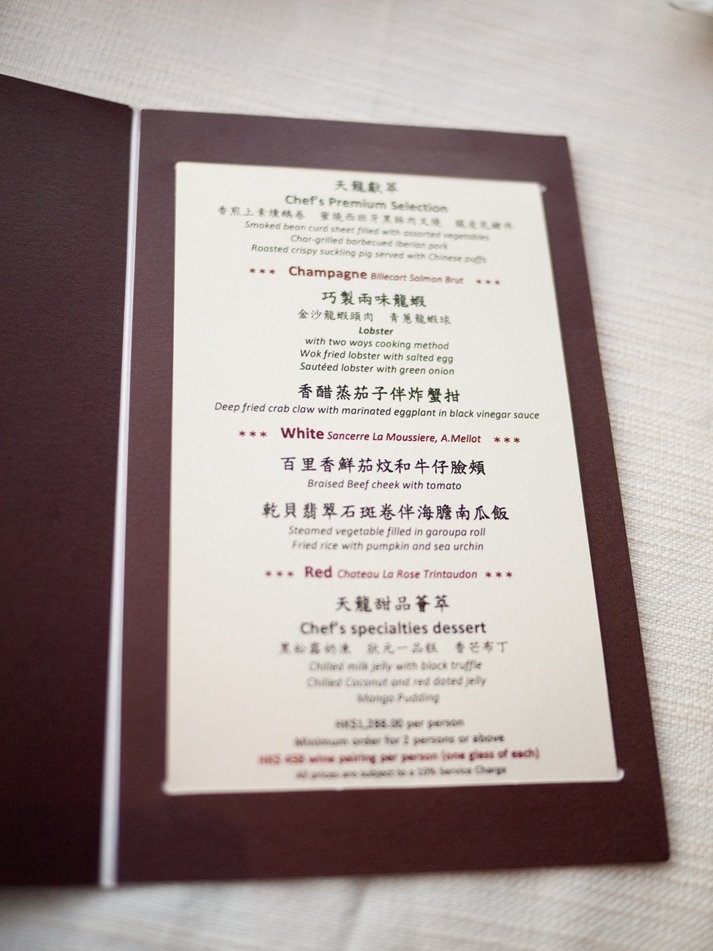 天龍獻萃
Chef's Premium Selection
香煎上素燻鵝卷 蜜燒西班牙黑豚肉叉燒 脆皮乳豬件
Smoked bean curd sheet filled with assorted vegetables
Char-grilled barbecued Iberian pork
Roasted crispy suckling pig served with Chinese puffs
*** Champagne Billecart Salmon Brut ***
巧製兩味龍蝦
金沙龍蝦頭肉 青蔥龍蝦球
Lobster
with two ways cooking method
Wok fried lobster with salted egg
Sautéed lobster with green onion
香醋蒸茄子伴炸蟹拑
Deep fried crab claw with marinated eggplant in black vinegar sauce
*** White Sancerre La Moussiere, A.Mellot ***
百里香鮮茄炆和牛仔臉頰
Braised Beef cheek with tomato
乾貝翡翠石斑卷伴海膽南瓜飯
Steamed vegetable filled in garoupa roll
Fried rice with pumpkin and sea urchin
*** Red Chateau La Rose Trintaudon ***
天龍甜品薈萃
Chef's specialties dessert
黑松露奶凍 狀元一品糕 香芒布丁
Chilled milk jelly with black truffle
Chilled Coconut and red dated jelly
Mango Pudding
HK$1,288.00 per person
Minimum order for 2 persons or above
wine pairing per person (one glass of each)
All prices are subject to a 10% Service Charge